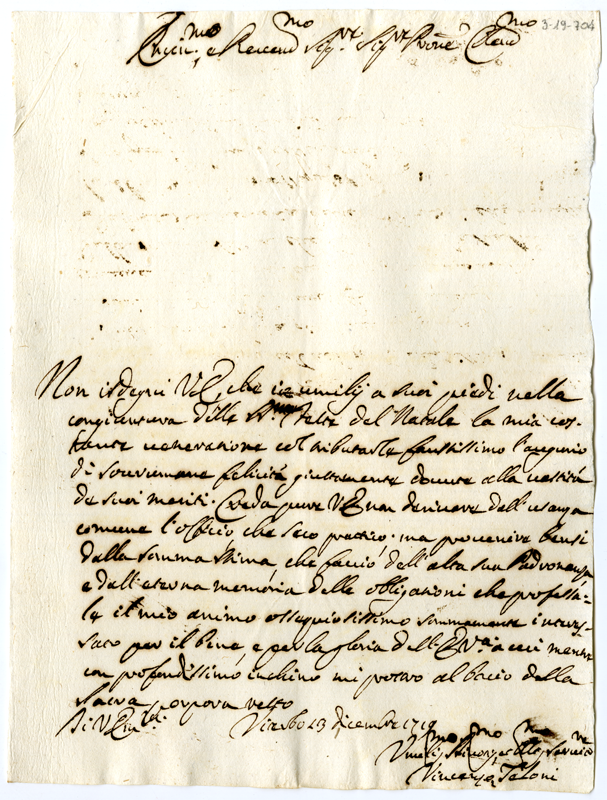 3-19-704
Emin.mo e Reverend.mo Sig.r Sig.r Prone Colend.mo
Non isdegni V.E., che io umilij a suoi piedi nella
congiuntura delle S.me Feste del Natale la mia cos-
tante venerazione col tributarle faustissimo l'augurio
di sovrumane felicità giustamente dovute alla vastità
de suoi meriti. Creda pure V.E. non derivare dall'usanza
comune l'officio che seco pratico; ma provenire bensi
dalla somma stima, che faccio dell'alta sua Padronanza
e dall'eterna memoria delle obligazioni che professa-
le il mio animo ossequiosissimo sommamente interes-
sato per il bene, e per la gloria dell'E.V.ra a cui mentre
con profondissimo inchino mi porto al bacio della
Sacra porpora resto
Di V. Em.
Viterbo 23 dicembre 1719
Umil.mo Servo
Vincenzo